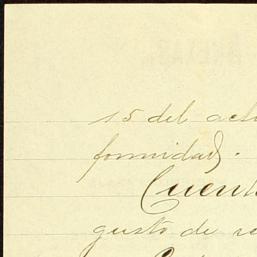 15 del act
formidad.
Cuent
gusto de re